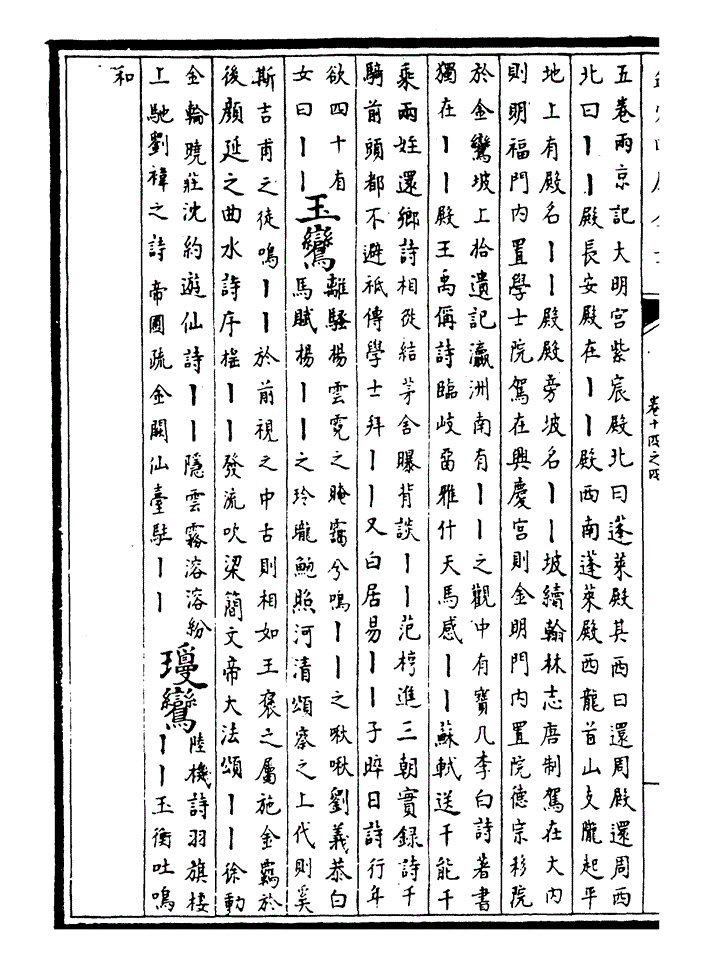 五卷兩京記大明宮紫宸殿北曰蓬萊殿其西曰還周殿還周西
北曰丨丨殿長安殿在丨丨殿西南蓬萊殿西龍首山支隴起平
地上有殿名丨丨殿殿旁坡名丨丨坡續翰林志唐制駕在大內
則明福門內置學士院駕在興慶宮則金明門內置院德宗移院
於金鑾坡上拾遺記瀛洲南有丨丨之觀中有寶几李白詩著書
獨在丨丨殿王禹偁詩臨岐留雅什天馬感丨丨蘇軾送千能千
乘兩姪還鄉詩相從結茅舍曝背談丨丨范梈進三朝實録詩千
騎前頭都不避祗傳學士拜丨丨又白居易丨丨子晬日詩行年
欲四十有
女曰丨丨
玉鸞
離騷楊雲霓之晻靄兮鳴丨丨之啾啾劉義恭白
馬賦楊丨丨之玲瓏鮑照河清頌察之上代則奚
斯吉甫之徒鳴丨丨於前視之中古則相如王褒之屬施金羈於
後顏延之曲水詩序搖丨丨發流吹梁簡文帝大法頌丨丨徐動
金輪曉莊沈約遊仙詩丨丨隱雲霧溶溶紛
上馳劉禕之詩帝圃疏金闕仙臺駐丨丨
瓊鸞
陸機詩羽旗棲
丨丨玉衡吐鳴
和
卷十四之四